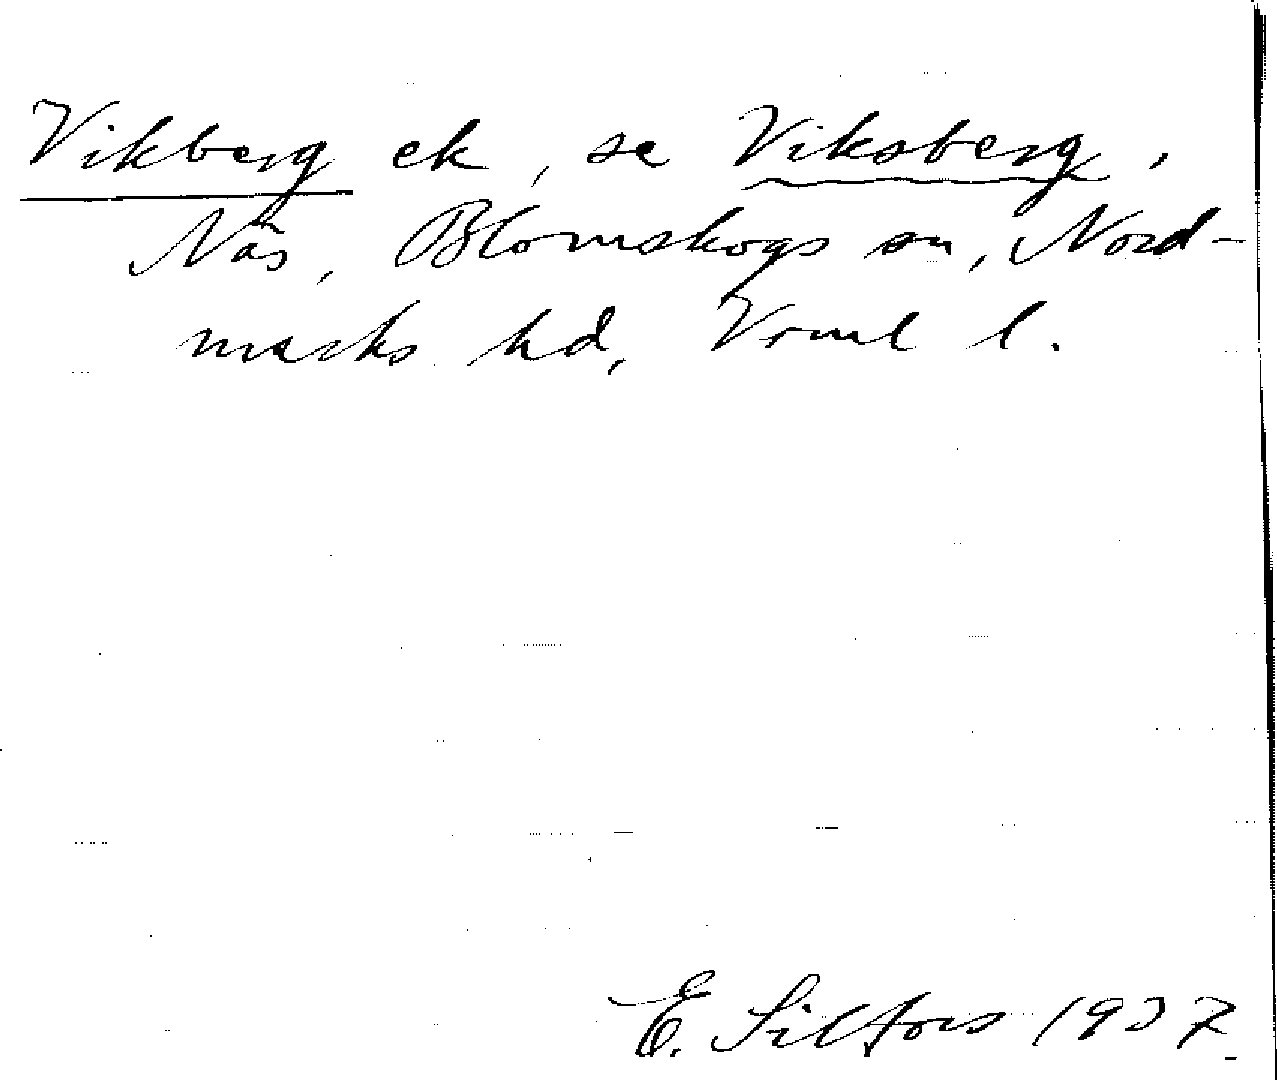 Vikberg ek, se Viksberg,
Näs, Blomskogs sn, Nord-
marks hd, Vrml l.
E. Silfors 1937